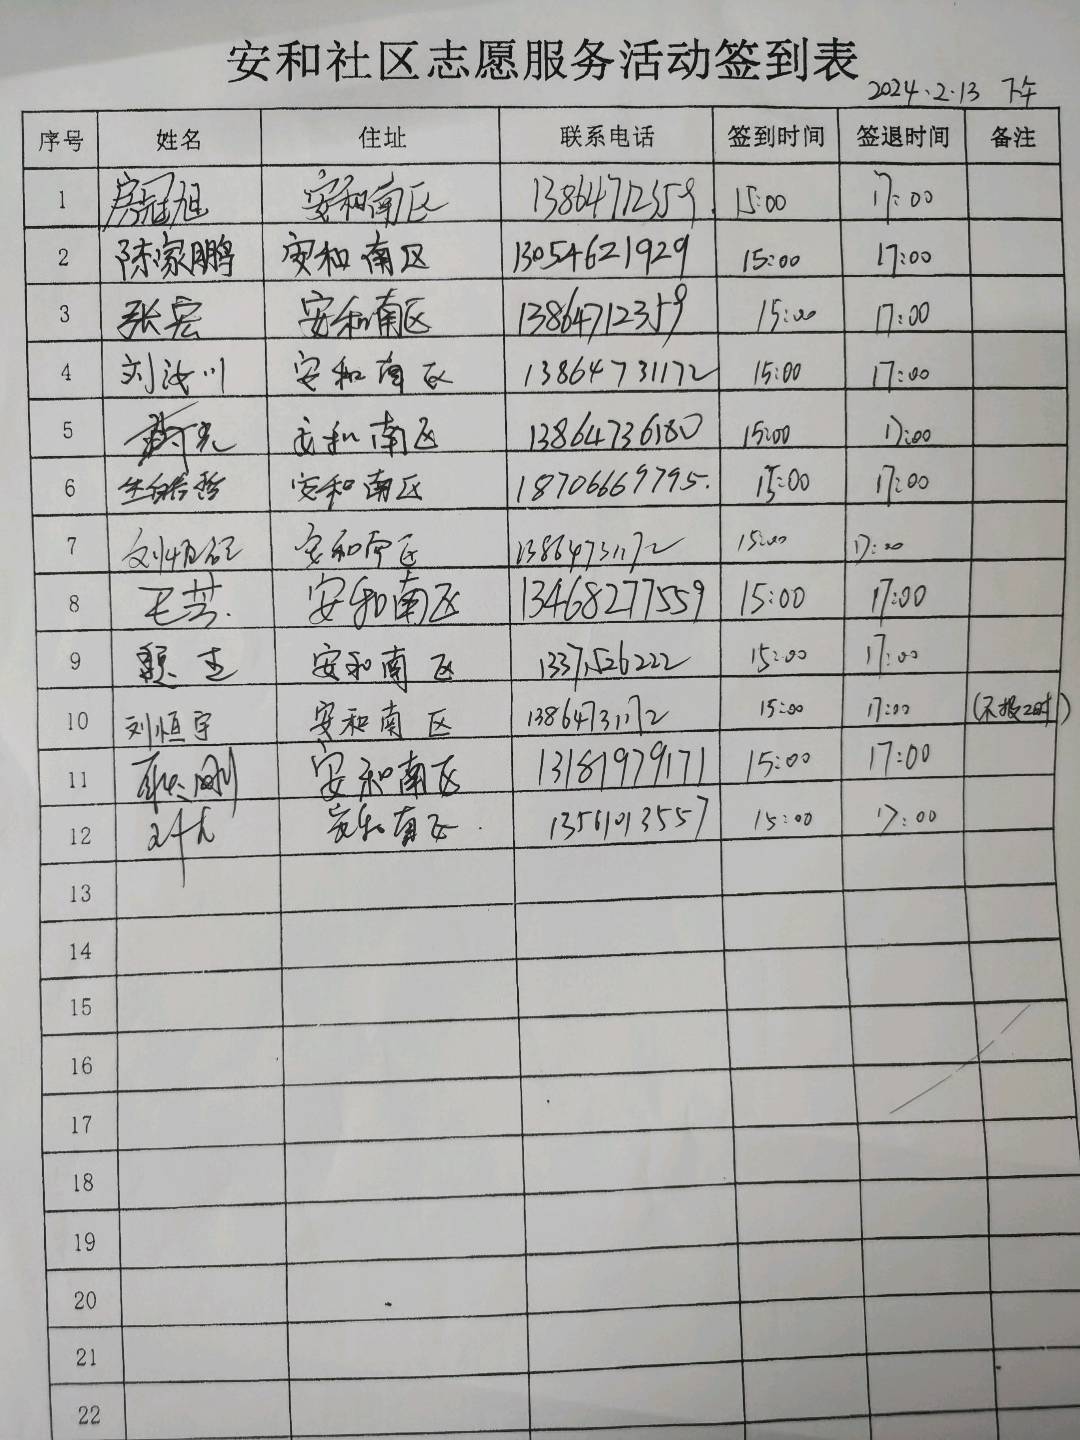 安和社区志愿服务活动签到表
2024.2.13 下午
序号 姓名 住址 联系电话 签到时间 签退时间 备注
1 房冠旭 安和南区 13864712359 15:00 17:00
2 陈家鹏 安和南区 13054621929 15:00 17:00
3 张宏 安和南区 13864712359 15:00 17:00
4 刘汝川 安和南区 13864731172 15:00 17:00
5 安和南区 13864736180 15:00 17:00
6 安和南区 18706669795. 15:00 17:00
7 安和南区 13864731172 15:00 17:00
8 王芸. 安和南区 13468277559 15:00 17:00
9 安和南区 13371526222 15:00 17:00
10 刘恒宇 安和南区 13864731172 15:00 17:00
11 安和南区 13181979171 15:00 17:00
12 安和南区 13561013557 15:00 17:00
13
14
15
16
17
18
19
20
21
22